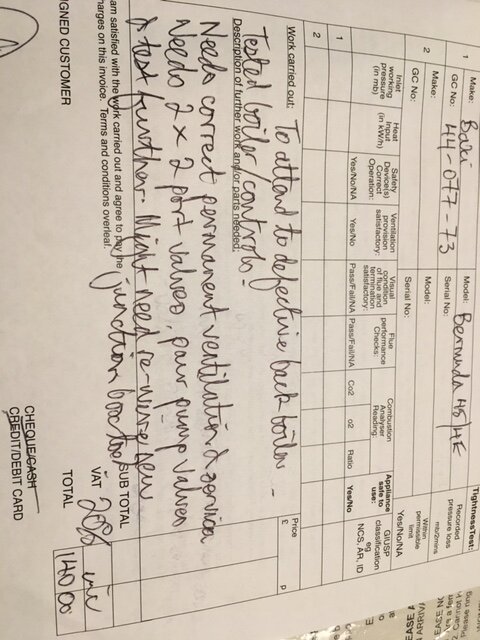 TightnessTest:
1 Make: Baxi Model: Bermuda 45/4E Recorded pressure loss mb/2mins
GC No: 44-077-73 Serial No: Within permissible limit
2 Make: Model: Yes/No/NA
GC No: Serial No:
Inlet working pressure (in mb) Heat Input (in kW/h) Safety Device(s) Correct Operation: Ventilation provision satisfactory: Visual condition of flue and termination satisfactory: Flue performance Checks: Combustion Analyser Reading: Appliance safe to use: GIUSP classification eg NCS, AR, ID
Yes/No/NA Yes/No Pass/Fail/NA Pass/Fail/NA Co2 o2 Ratio Yes/No
1
2
Work carried out: To attend to defective back boiler - Price
£ p
Tested boiler/controls -
Description of further work and/or parts needed:
Needs correct permanent ventilation & service
Needs 2 x 2 port valves, pair pump valves
& test further. Might need re-wire new
junction box too
am satisfied with the work carried out and agree to pay the
arges on this invoice. Terms and conditions overleaf.
SUB TOTAL
VAT 20%
TOTAL 140 00
GNED CUSTOMER
CHEQUE/CASH
CREDIT/DEBIT CARD